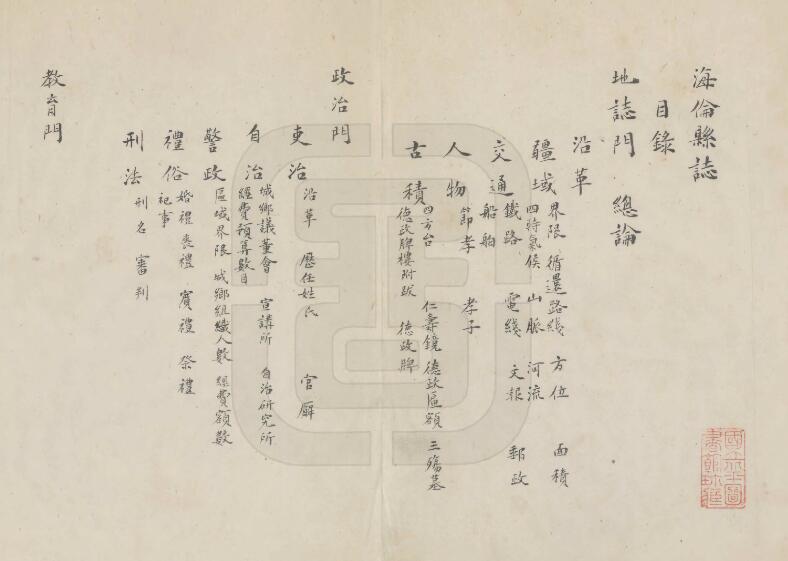 海倫縣誌
目錄
地誌門 總論
沿革
疆域 界限 循還路綫 方位 面積
四時氣候 山脈 河流
交通 鐵路 電綫 文報 郵政
船舶
人物 節孝 孝子
古積 四方台 仁壽鏡 德政匾額 三殤墓
德政牌樓附跋 德政牌
政治門
吏治 沿革 歷任姓氏 官廨
自治 城鄉議董會 宣講所 自治研究所
經費預算數目
警政 區域界限 城鄉組織人數 經費額數
禮俗 婚禮 喪禮 賓禮 祭禮
祀事
刑法 刑名 審判
教育門
國立北平圖書館珍藏